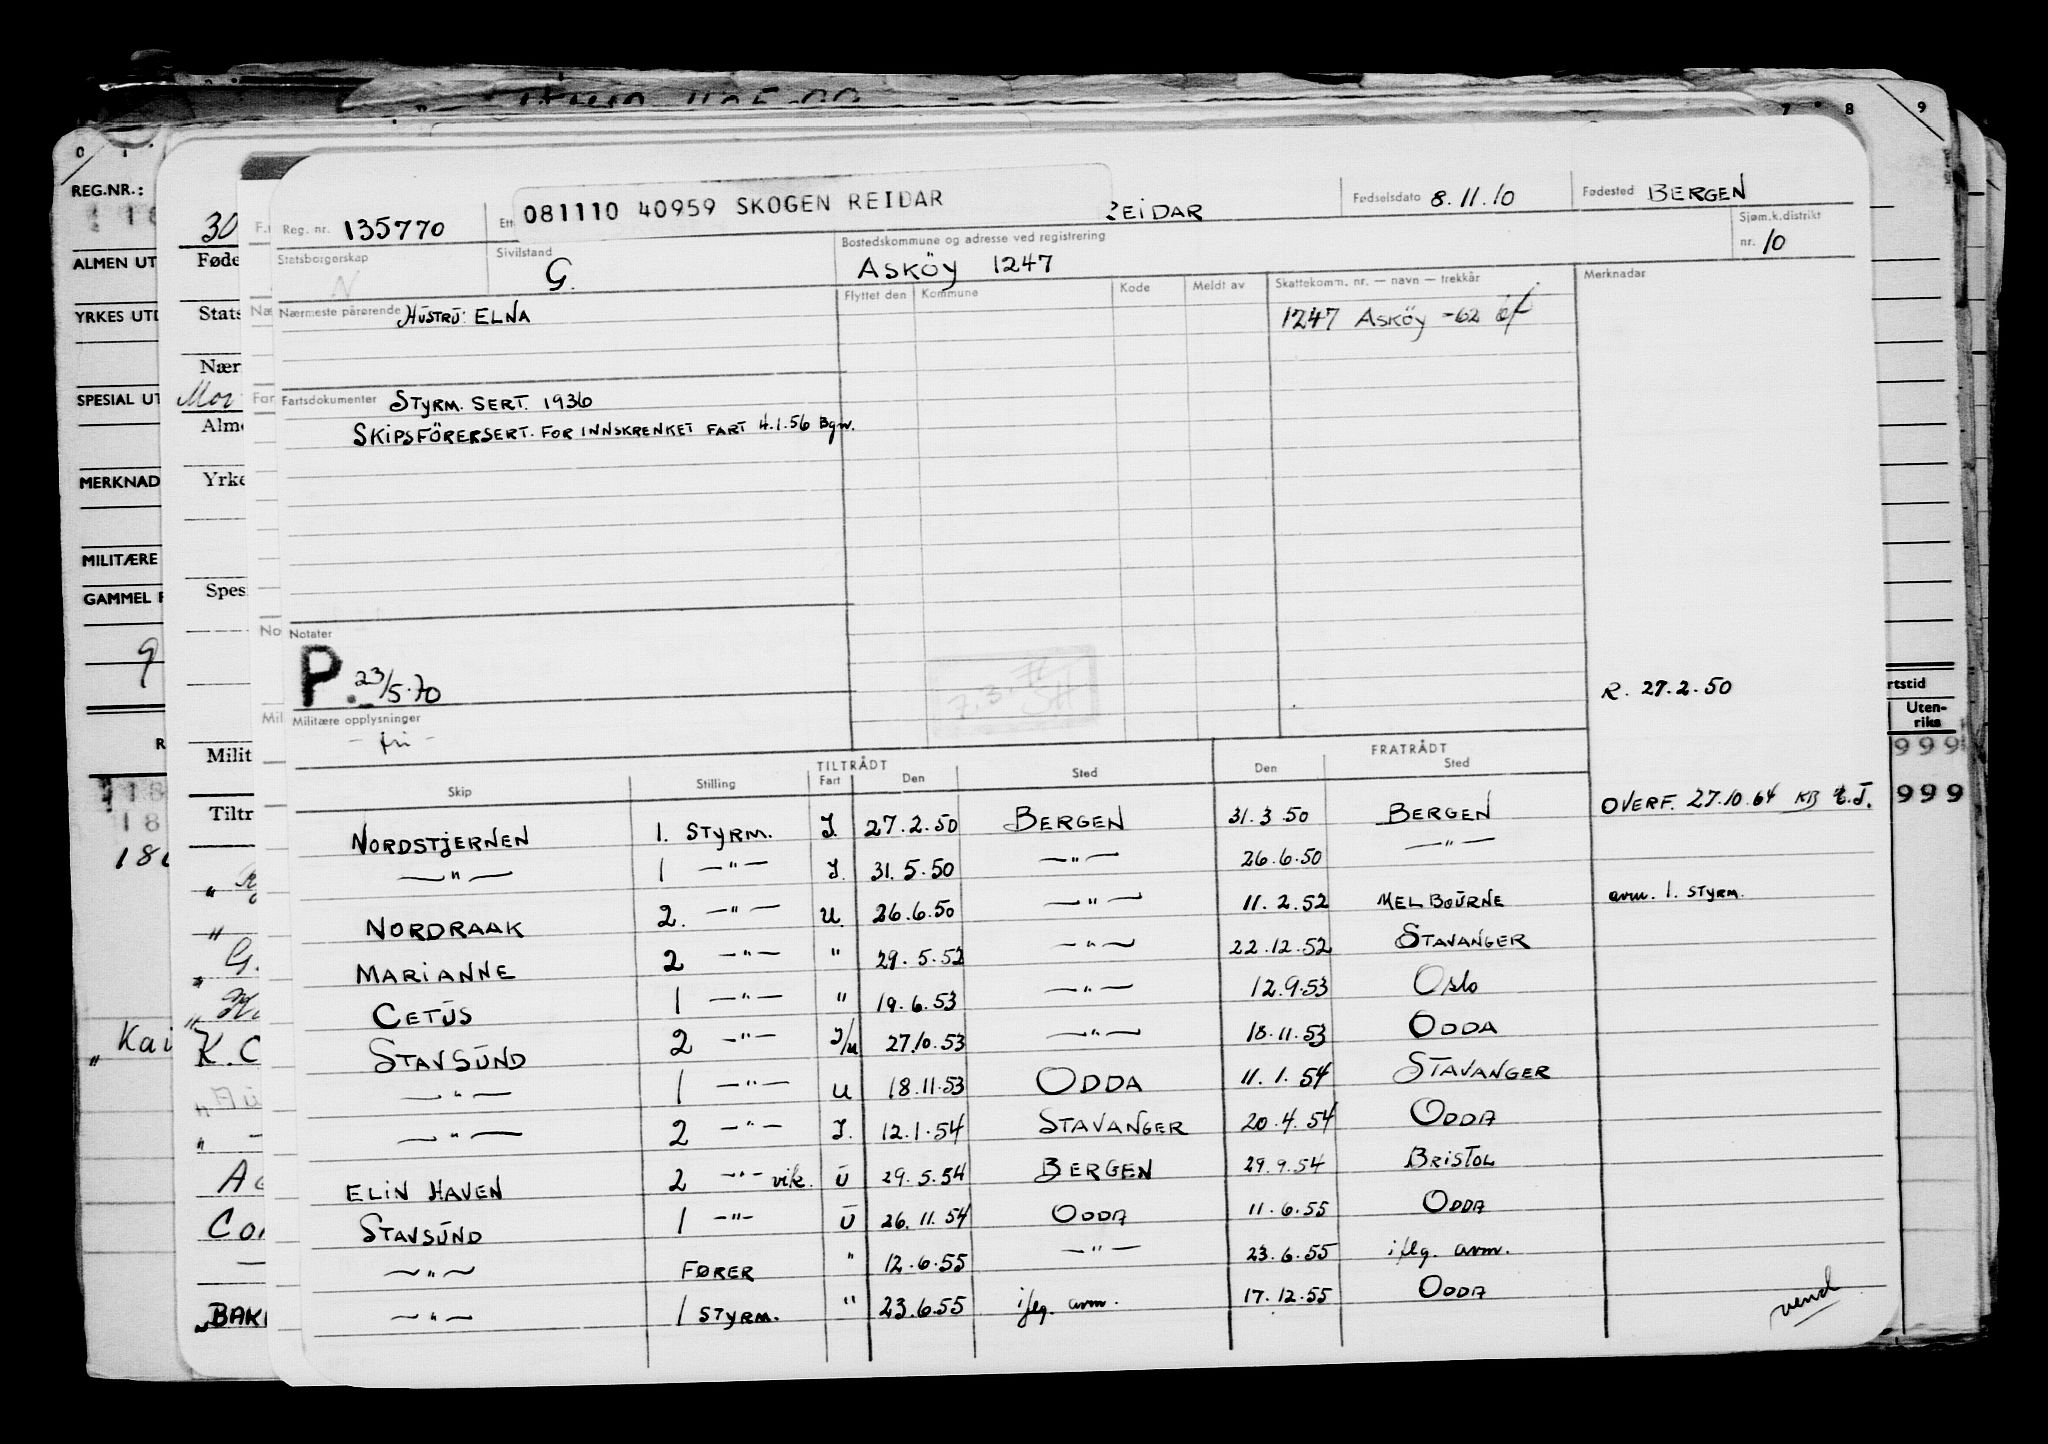 081110 40959 SKOGEN REIDAR
Reg. nr. 135770 EIDAR Fødselsdato 8.11.10 Fødested BERGEN
Statsborgerskap N Sivilstand G. Bostedskommune og adresse ved registrering ASKÖY 1247 Sjøm.k.distrikt nr. 10
Nærmeste pårørende HUSTRU: ELNA
Flyttet den Kommune Kode Meldt av Skattekomm. nr. — navn — trekkår Merknader
1247 ASKÖY -62
Fartsdokumenter STYRM. SERT. 1936
SKIPSFÖRERSERT. FOR INNSKRENKET FART 4.1.56 Bgn.
Notater
P. 23/5.70
R. 27.2.50
Militære opplysninger
- fri -
TILTRÅDT FRATRÅDT
Skip Stilling Fart Den Sted Den Sted
NORDSTJERNEN 1. STYRM. I. 27.2.50 BERGEN 31.3.50 BERGEN OVERF. 27.10.64 KB E.T.
—"— 1 —"— I. 31.5.50 —"— 26.6.50 —"—
NORDRAAK 2. —"— U. 26.6.50 —"— 11.2.52 MELBOURNE avm. 1. STYRM.
MARIANNE 2 —"— " 29.5.52 —"— 22.12.52 STAVANGER
CETUS 1 —"— " 19.6.53 —"— 12.9.53 OSLO
STAVSUND 2 —"— I/U 27.10.53 —"— 18.11.53 ODDA
—"— 1 —"— U 18.11.53 ODDA 11.1.54 STAVANGER
—"— 2 —"— I. 12.1.54 STAVANGER 20.4.54 ODDA
ELIN HAVEN 2 —"— vik. U 29.5.54 BERGEN 29.9.54 BRISTOL
STAVSUND 1 —"— U 26.11.54 ODDA 11.6.55 ODDA
—"— FØRER " 12.6.55 —"— 23.6.55 iflg. avm.
—"— 1 STYRM. " 23.6.55 iflg. avm. 17.12.55 ODDA
vend
REG.NR.:
ALMEN UT
YRKES UTD
SPESIAL UT
MERKNAD
MILITÆRE
GAMMEL
30
Føde
Stats
Nær
Mor
Alme
Yrke
Spes
Milit
Tiltr
G.
„Kai
K. C
Co
„BAK
rtstid
Uten-
riks
999
999